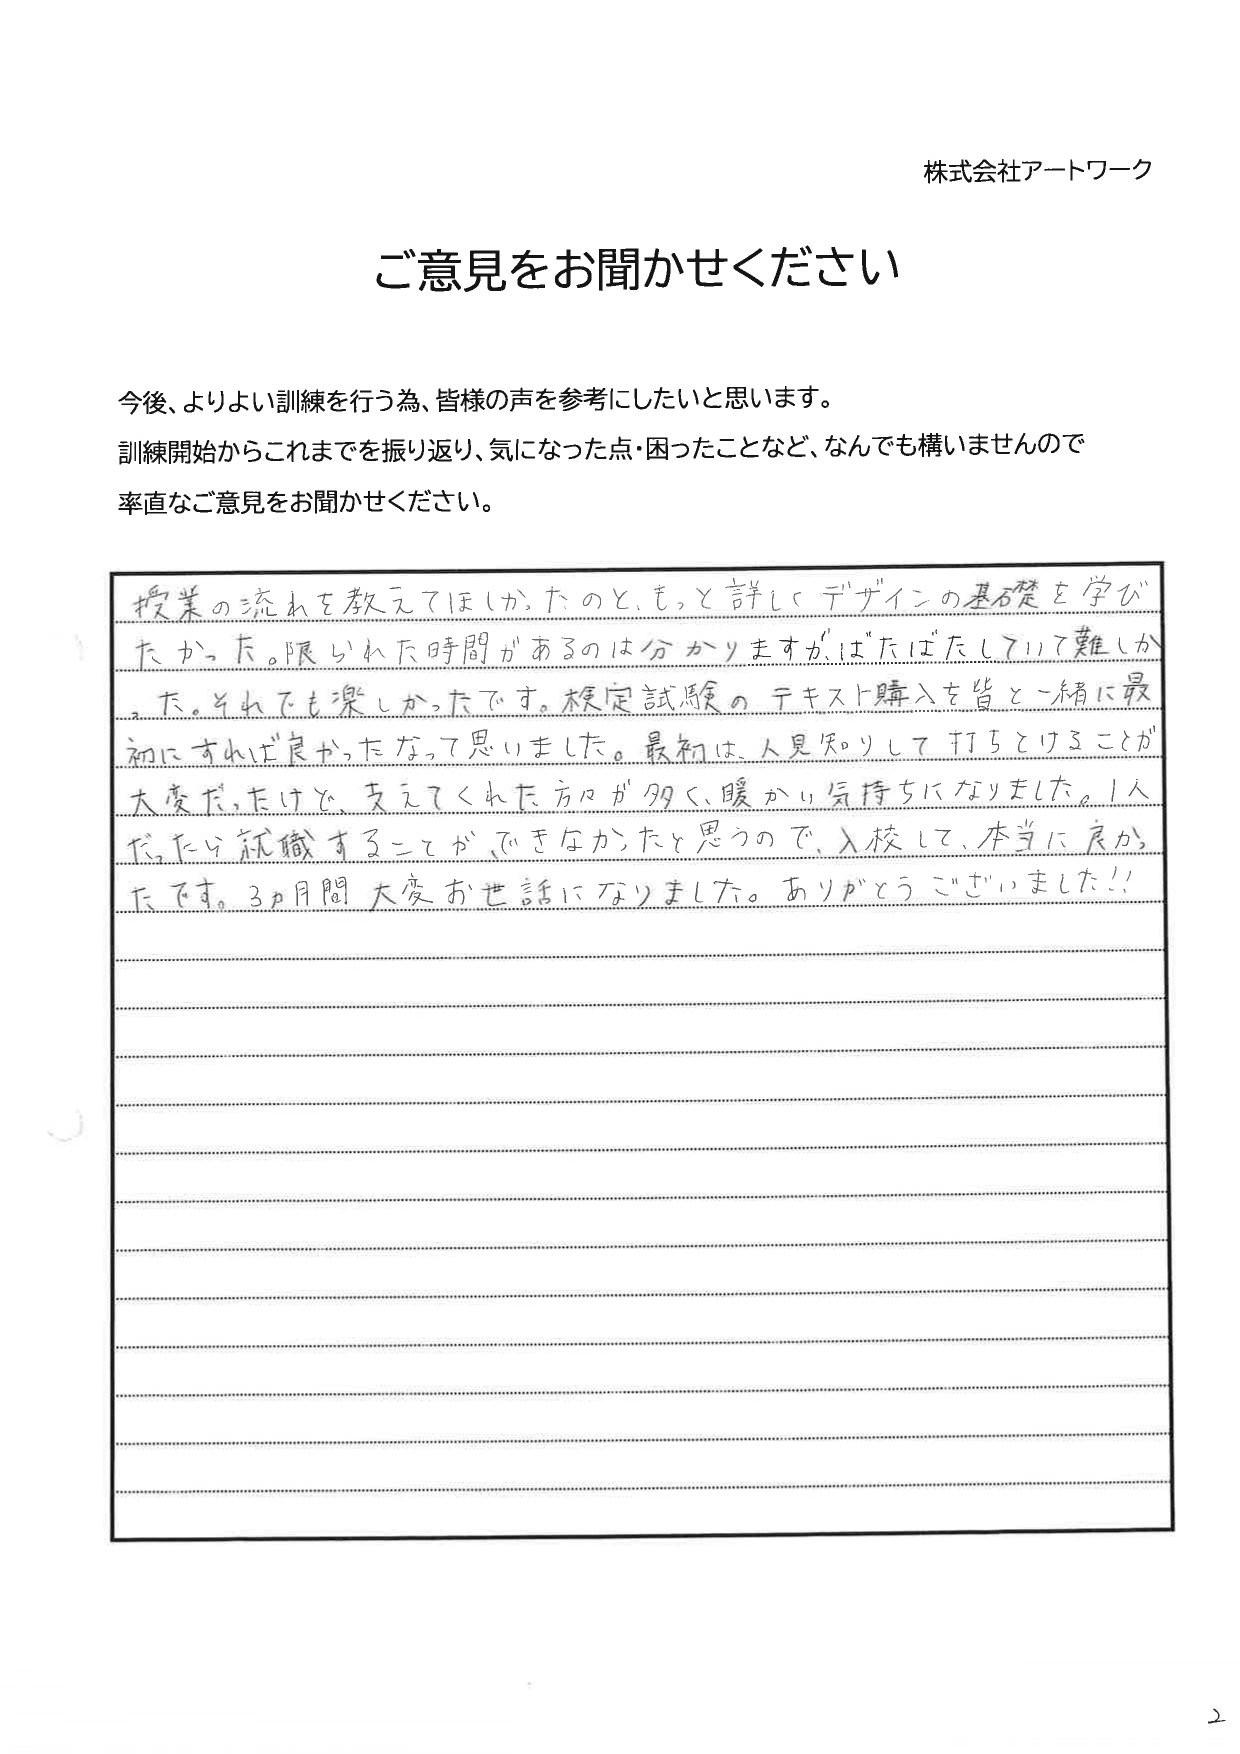 株式会社アートワーク
ご意見をお聞かせください
今後、よりよい訓練を行う為、皆様の声を参考にしたいと思います。
訓練開始からこれまでを振り返り、気になった点・困ったことなど、なんでも構いませんので
率直なご意見をお聞かせください。
授業の流れを教えてほしかったのと、もっと詳しくデザインの基礎を学び
たかった。限られた時間があるのは分かりますが、ばたばたしていて難しか
った。それでも楽しかったです。検定試験のテキスト購入を皆と一緒に最
初にすれば良かったなって思いました。最初は、人見知りして打ちとけることが
大変だったけど、支えてくれた方々が多く、暖かい気持ちになりました。1人
だったら就職することが、できなかったと思うので、入校して、本当に良かっ
たです。3ヵ月間大変お世話になりました。ありがとうございました!!
2